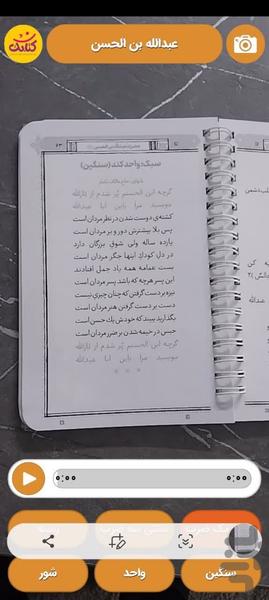 کتابک
عبدالله بن الحسن
۶۳
سبک: واحد کند (سنگین)
گرچه ابن الحسنم پُر شدم از ثارالله
بنویسید مرا یابن ابا عبدالله
کشته‌ی دوست شدن در نظر مردان است
پس بلا بیشترش دور و بر مردان است
یازده ساله ولی شوق بزرگان دارد
در دل کودک اینها جگر مردان است
بست عمامه همه یاد جمل افتادند
این پسر هرچه که باشد پسر مردان است
نیزه بر دست گرفتن که چنان چیزی نیست
دست بر دست گرفتن هنر مردان است
بگذارید ببیند که خودش یک حسن است
حبس در خیمه شدن بر ضرر مردان است
گرچه ابن الحسنم پُر شدم از ثارالله
بنویسید مرا یابن ابا عبدالله
* * *
0:00
0:00
سنگین
واحد
شور